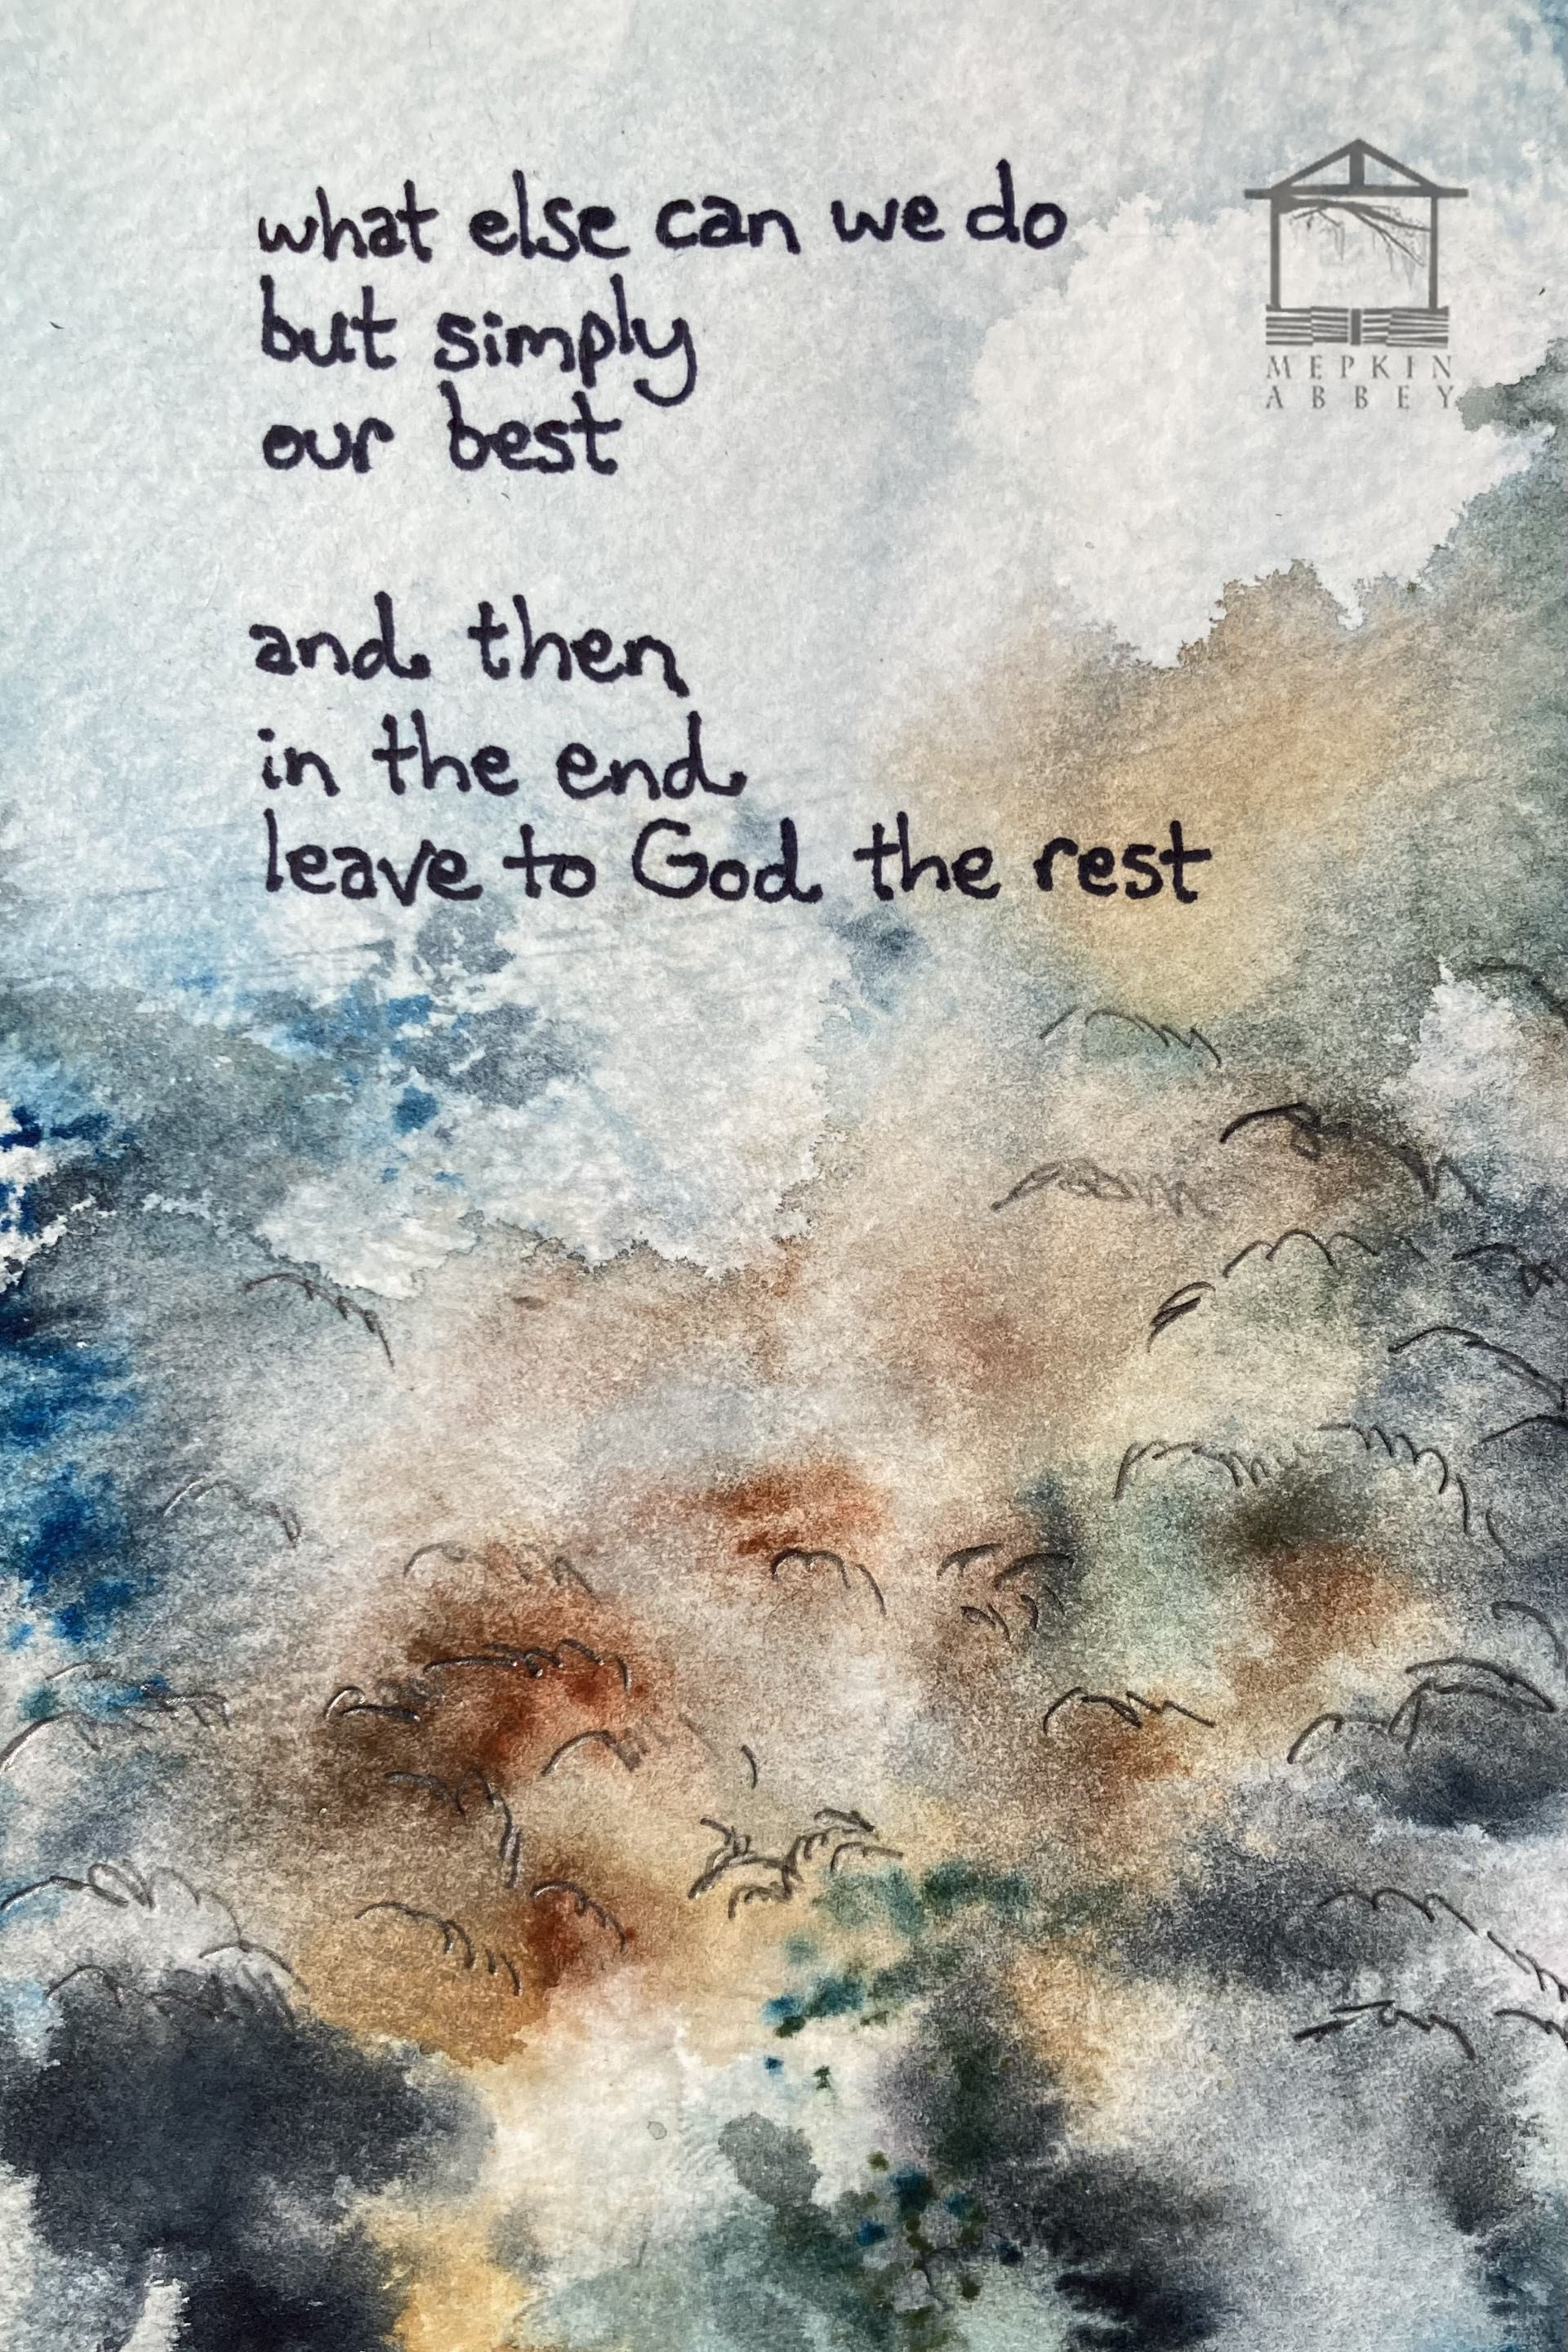 what else can we do
but simply
our best
and then
in the end
leave to God the rest
MEPKIN
ABBEY